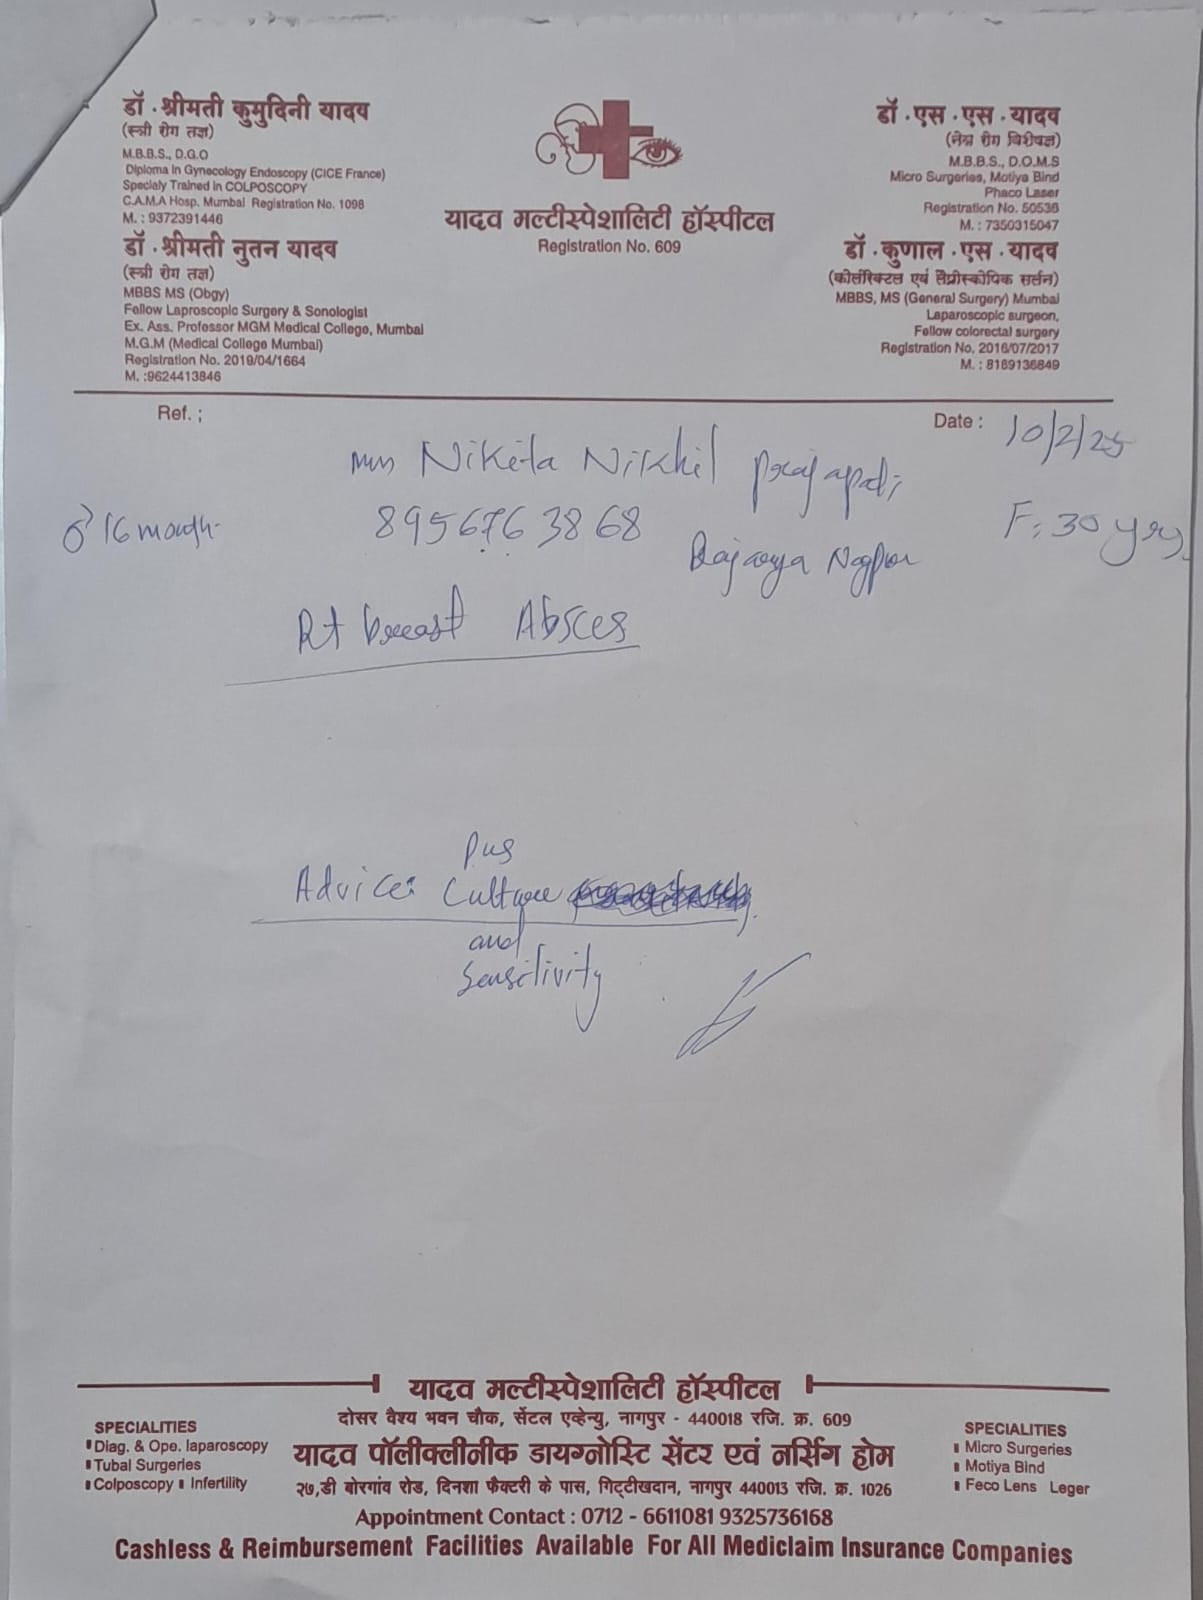 डॉ. श्रीमती कुमुदिनी यादव
(स्त्री रोग तज्ञ)
M.B.B.S., D.G.O
Diploma in Gynecology Endoscopy (CICE France)
Specialy Trained in COLPOSCOPY
C.A.M.A Hosp. Mumbai Registration No. 1098
M. : 9372391446
डॉ. श्रीमती नुतन यादव
(स्त्री रोग तज्ञ)
MBBS MS (Obgy)
Fellow Laproscopic Surgery & Sonologist
Ex. Ass. Professor MGM Medical College, Mumbai
M.G.M (Medical College Mumbai)
Registration No. 2019/04/1664
M. :9624413846
यादव मल्टीस्पेशालिटी हॉस्पीटल
Registration No. 609
डॉ. एस. एस. यादव
(नेत्र रोग विशेषज्ञ)
M.B.B.S., D.O.M.S
Micro Surgeries, Motiya Bind
Phaco Laser
Registration No. 50536
M. : 7350315047
डॉ. कुणाल. एस. यादव
(कोलरेक्टल एवं लैप्रीस्कोपिक सर्जन)
MBBS, MS (General Surgery) Mumbai
Laparoscopic surgeon,
Fellow colorectal surgery
Registration No. 2016/07/2017
M. : 8169136849
Ref. ;
Date : 10/2/25
Nikita Nikhil prajapati
♂ 16 month
8956763868
F: 30 yrs
Nagpur
Rt breast Absces
pus
Advice: Culture
and
Sensitivity
यादव मल्टीस्पेशालिटी हॉस्पीटल
दोसर वैश्य भवन चौक, सेंटल एव्हेन्यु, नागपुर - 440018 रजि. क्र. 609
यादव पॉलीक्लीनीक डायग्नोस्टि सेंटर एवं नर्सिंग होम
२७,डी बोरगांव रोड, दिनशा फैक्टरी के पास, गिट्टीखदान, नागपुर 440013 रजि. क्र. 1026
Appointment Contact : 0712 - 6611081 9325736168
SPECIALITIES
Diag. & Ope. laparoscopy
Tubal Surgeries
Colposcopy Infertility
SPECIALITIES
Micro Surgeries
Motiya Bind
Feco Lens Leger
Cashless & Reimbursement Facilities Available For All Mediclaim Insurance Companies